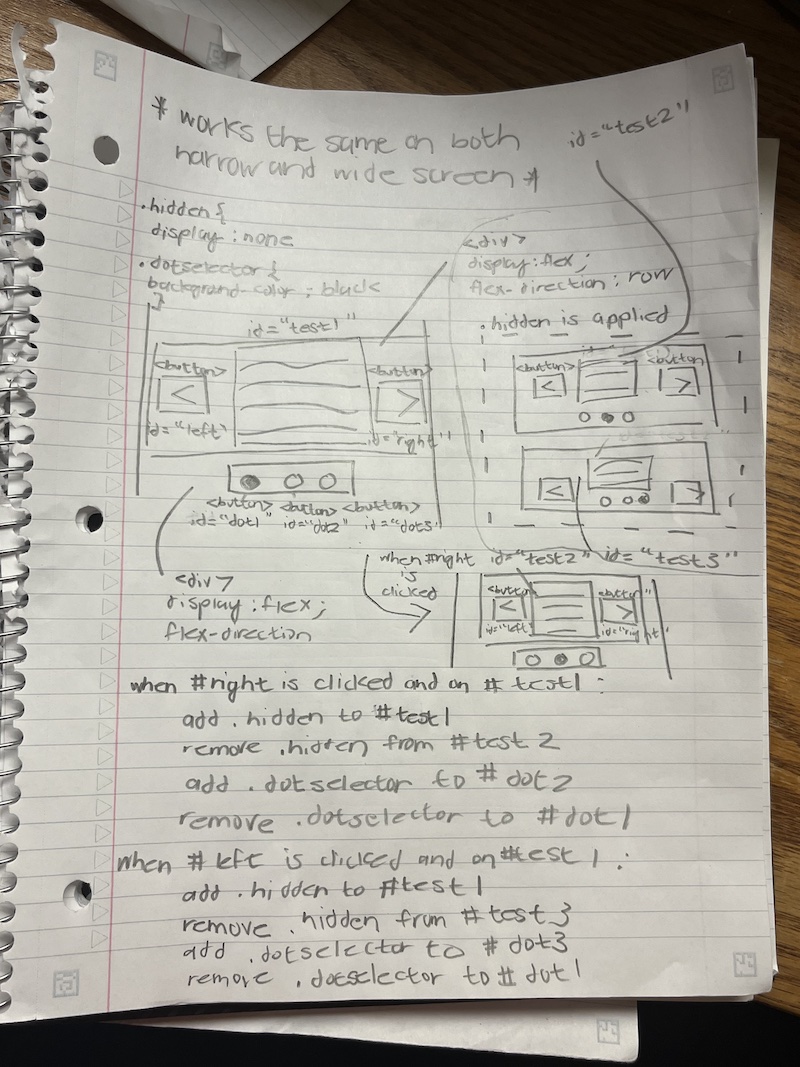 * works the same on both
narrow and wide screen *
id="test2"
.hidden {
display : none
.dotselector {
background-color : black
}
<div>
display : flex ;
flex-direction : row
.hidden is applied
id="test1"
<button>
<
id="left"
<button>
>
id="right"
<button> <button> <button>
id="dot1" id="dot2" id="dot3"
<div>
display : flex ;
flex-direction
<button>
<
<button
>
<
>
id="test2" id="test3"
when #right
is
clicked
<button
<
id="left"
<button
>
id="right"
when #right is clicked and on #test1 :
add .hidden to #test1
remove .hidden from #test2
add .dotselector to #dot2
remove .dotselector to #dot1
when #left is clicked and on #test1 :
add .hidden to #test1
remove .hidden from #test3
add .dotselector to #dot3
remove .dotselector to #dot1